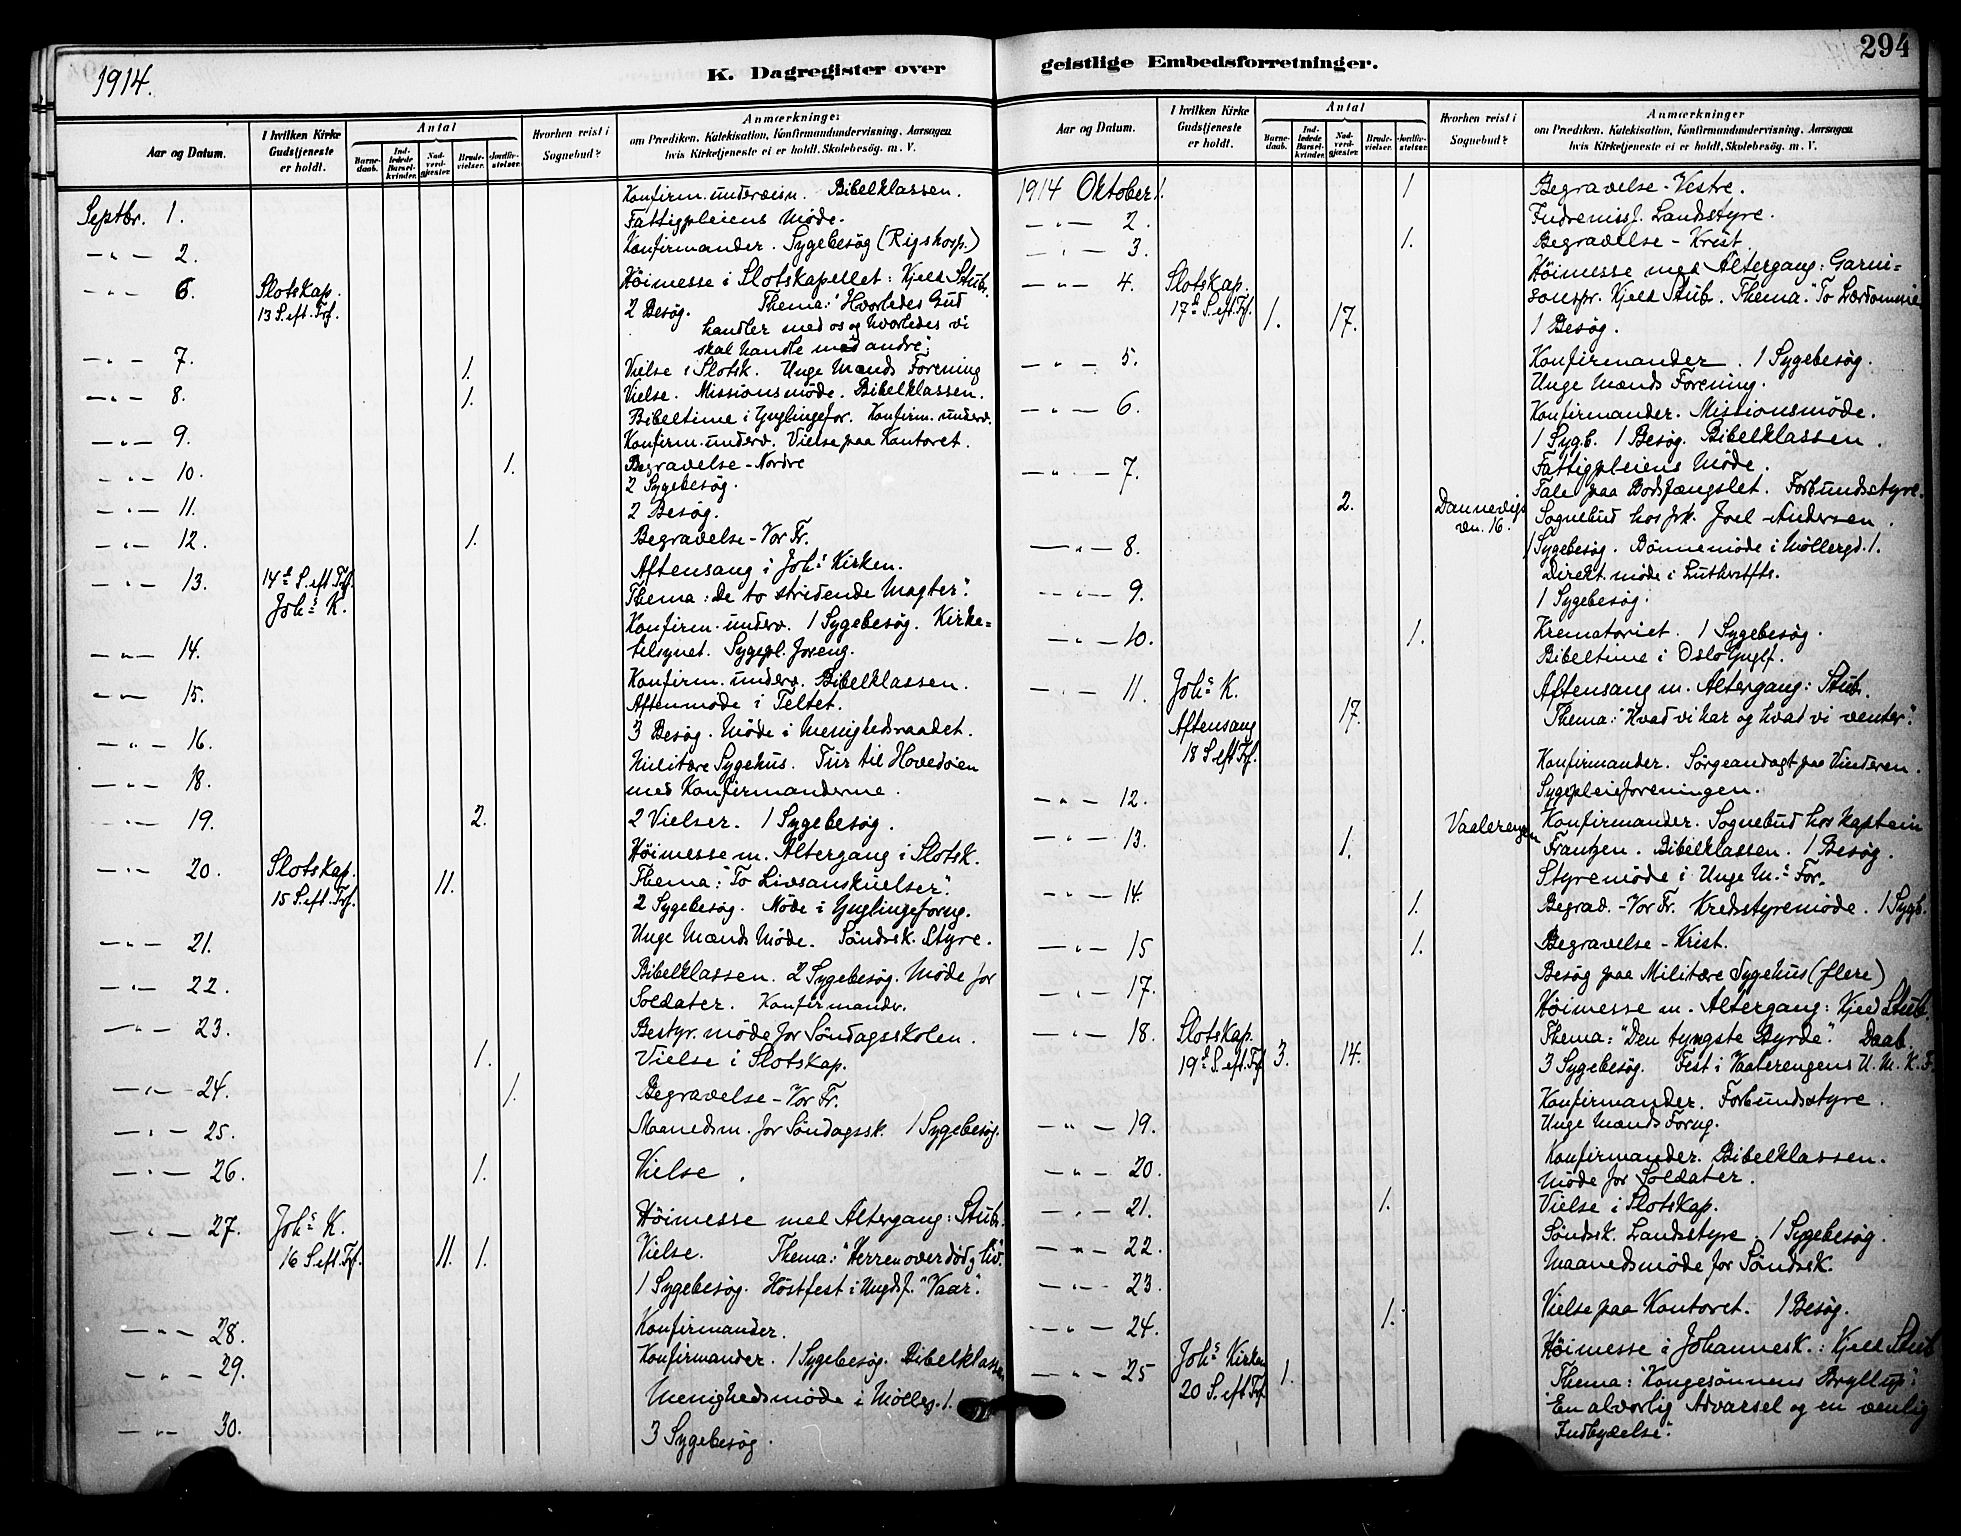 1914.
K. Dagregister over
Aar og Datum.
I hvilken Kirke Gudstjeneste er holdt.
Antal
Barnedaab.
Indledede Barselkvinder.
Nadverdgjester.
Brudevielser.
Jordfæstelser.
Hvorhen reist i Sognebud?
Anmerkninger
om Prædiken, Katekisation, Konfirmandundervisning, Aarsagen
hvis Kirketjeneste ei er holdt, Skolebesøg. m. V.
Septbr. 1. Konfirm.undervisn. Bibelklassen.
Fattigpleiens Møde.
— " — 2. Konfirmander. Sygebesøg (Rigshosp.)
— " — 6. Slotskap. Høimesse i Slotskapellet: Kjeld Stub.
13 S. eft. Trf. 2 Besøg. Thema: "Hvorledes Gud
handler med os og hvorledes vi
skal handle med andre".
— " — 7. 1. Vielse i Slotsk. Unge Mænds Forening
— " — 8. 1. Vielse. Missionsmøde. Bibelklassen.
Bibeltime i Ynglingefor. Konfirm. underv.
— " — 9. Konfirm. underv. Vielse paa Kontoret.
— " — 10. 1. Begravelse - Nordre
2 Sygebesøg.
— " — 11. 2 Besøg.
— " — 12. 1. Begravelse - Vor Fr.
— " — 13. 14d S. eft Trf. Aftensang i Johs Kirken.
Johs K. Thema: "De to stridende Magter".
— " — 14. Konfirm. underv. 1 Sygebesøg. Kirke=
tilsynet. Sygepl. foreng.
— " — 15. Konfirm. underv. Bibelklassen.
Aftenmøde i Teltet.
— " — 16. 3 Besøg. Møde i Menighedsraadet.
— " — 18. Militære Sygehus. Tur til Hovedøien
med Konfirmanderne.
— " — 19. 2. 2 Vielser. 1 Sygebesøg.
— " — 20. Slotskap. Høimesse m. Altergang i Slotsk.
15 S. eft. Trf. 11. Thema: "To Livsanskuelser".
2 Sygebesøg. Møde i Ynglingeforng.
— " — 21. Unge Mænds Møde. Søndsk. Styre.
— " — 22. Bibelklassen. 2 Sygebesøg. Møde for
Soldater. Konfirmandr.
— " — 23. Bestyr. møde for Søndagsskolen.
1. Vielse i Slotskap.
— " — 24. 1. Begravelse - Vor Fr.
— " — 25. Maanedsm. for Søndagssk. 1 Sygebesøg.
— " — 26. 1. Vielse.
— " — 27. Johs K. Høimesse med Altergang: Stub.
16 S. eft. Trf. 11. 1. Vielse. Thema: "Herren over død og Liv".
1 Sygebesøg. Høstfest i Ungdsf. "Vaar".
— " — 28. Konfirmander.
— " — 29. Konfirmander. 1 Sygebesøg. Bibelklassen
Menighedsmøde i Møllerg. 1.
— " — 30. 3 Sygebesøg.
geistlige Embedsforretninger.
294
Aar og Datum.
I hvilken Kirke Gudstjeneste er holdt.
Antal
Barnedaab.
Indledede Barselkvinder.
Nadverdgjester.
Brudevielser.
Jordfæstelser.
Hvorhen reist i Sognebud?
Anmerkninger
om Prædiken, Katekisation, Konfirmandundervisning, Aarsagen
hvis Kirketjeneste ei er holdt, Skolebesøg. m. V.
1914 Oktober 1. 1. Begravelse - Vestre.
— " — 2. Indremissj. Landsstyre.
— " — 3. 1. Begravelse - Krist.
— " — 4. Slotskap. Høimesse med Altergang: Garni=
17d S. eft Trf. 1. 17. sonspr. Kjeld Stub. Thema: "To Lærdomme
1 Besøg.
— " — 5. Konfirmander. 1 Sygebesøg.
Unge Mænds Forening.
— " — 6. Konfirmander. Missionsmøde.
1 Sygb. 1 Besøg. Bibelklassen.
— " — 7. Fattigpleiens Møde.
Tale paa Bodsfængslet. Forbundsstyre.
2. Dannevigs vn. 16. Sognebud hos frk. Joel Andersen.
— " — 8. 1 Sygebesøg. Bønnemøde i Møllergd. 1.
Direkt. møde i Lutherstfts.
— " — 9. 1 Sygebesøg.
— " — 10. 1. Krematoriet. 1 Sygebesøg.
Bibeltime i Oslo Ynglf.
— " — 11. Johs K. Aftensang m. Altergang: Stub.
Aftensang 17. Thema: "Hvad vi har og hvad vi venter".
18 S. eft Trf.
— " — 12. Konfirmander. Sørgeandagt paa Vinderen.
Sygepleieforeningen.
— " — 13. 1. Vaalerengen Konfirmander. Sognebud hos Kaptein
Frantzen. Bibelklassen. 1 Besøg.
Styremøde i Unge M.s For.
— " — 14. 1. Begrav. - Vor Fr. Kredsstyremøde. 1 Sygb.
— " — 15 1. Begravelse - Krist.
— " — 17. Besøg paa Militære Sygehus (flere)
— " — 18. Slotskap. Høimesse m. Altergang: Kjeld Stub.
19d S. eft Trf 3. 14. Thema: "Den tyngste Byrde". Daab.
3 Sygebesøg. Fest i Vaalerengens U. M. K. F.
— " — 19. Konfirmander. Forbundsstyre.
Unge Mænds Forng.
— " — 20. Konfirmander. Bibelklassen.
Møde for Soldater.
— " — 21. 1. Vielse i Slotskap.
— " — 22. Søndsk. Landsstyre. 1 Sygebesøg.
— " — 23. Maanedsmøde for Søndsk.
— " — 24. 1. Vielse paa Kontoret. 1 Besøg.
— " — 25 Johs Kirken Høimesse i Johannesk.: Kjeld Stub
20 S. eft Trf. 1. Thema: "Kongesønnens Bryllup:
En alvorlig Advarsel og en venlig
Indbydelse".